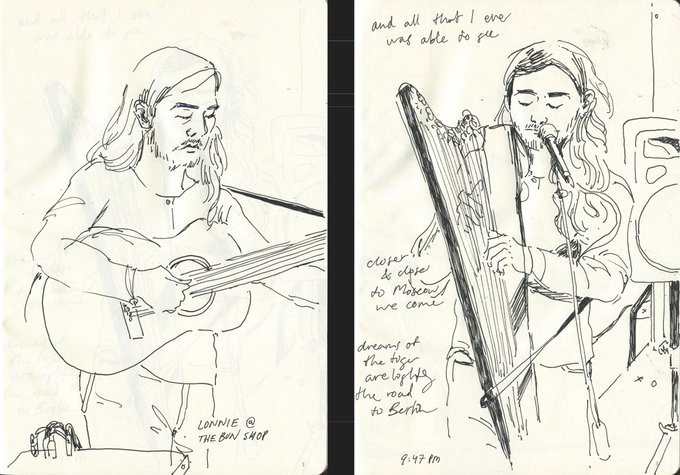 LONNIE @
THE BUN SHOP
and all that I ever
was able to see
closer
& close
to Moscow
we come
dreams of
the tiger
are lighting
the road
to Berlin
9:47 PM